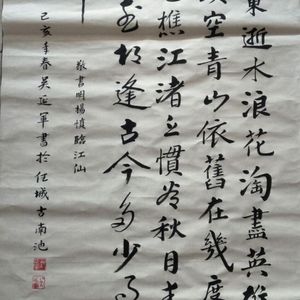 東逝水浪花淘盡英雄
空青山依舊在幾度
樵江渚上慣看秋月春
喜相逢古今多少事
敬書明楊慎臨江仙
己亥年春吴延軍書於任城古南池